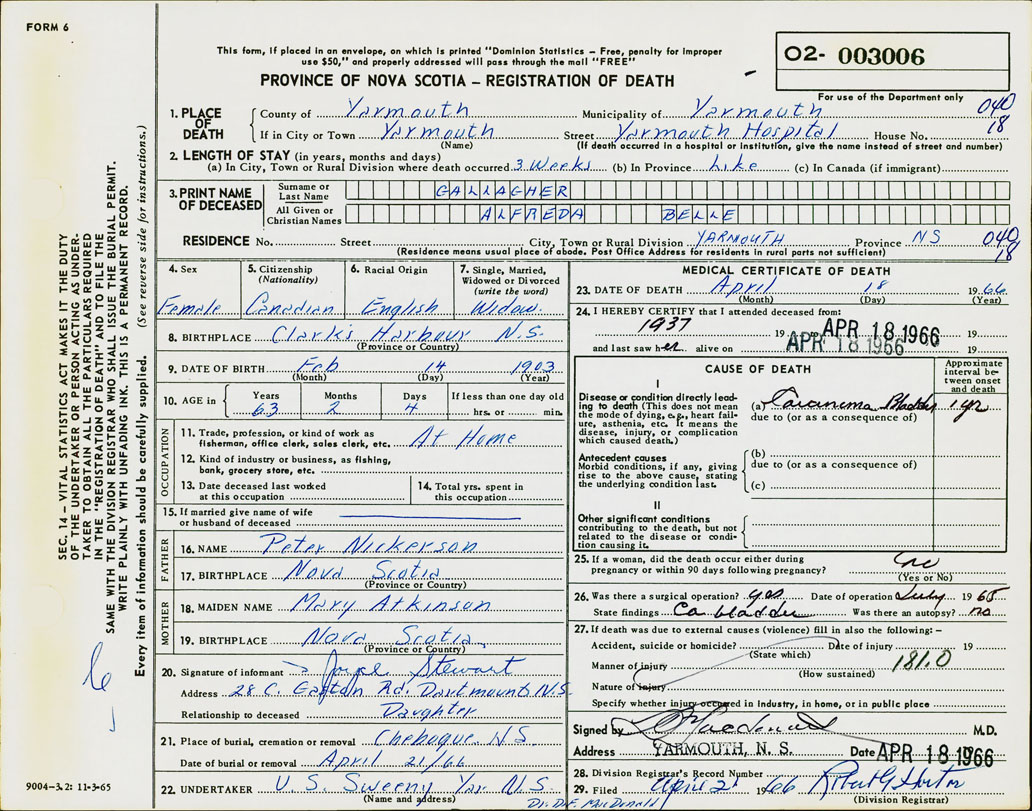 FORM 6
This form, if placed in an envelope, on which is printed "Dominion Statistics – Free, penalty for improper
use $50," and properly addressed will pass through the mail "FREE"
PROVINCE OF NOVA SCOTIA – REGISTRATION OF DEATH
O2- 003006
For use of the Department only
040
18
1. PLACE OF DEATH County of Yarmouth Municipality of Yarmouth
If in City or Town Yarmouth Street Yarmouth Hospital House No.
(Name) (If death occurred in a hospital or institution, give the name instead of street and number)
2. LENGTH OF STAY (in years, months and days)
(a) In City, Town or Rural Division where death occurred 3 Weeks (b) In Province Life (c) In Canada (if immigrant)
3. PRINT NAME OF DECEASED Surname or Last Name GALLAGHER
All Given or Christian Names ALFREDA BELLE
RESIDENCE No. Street City, Town or Rural Division YARMOUTH Province NS 040
18
(Residence means usual place of abode. Post Office Address for residents in rural parts not sufficient)
4. Sex Female
5. Citizenship (Nationality) Canadian
6. Racial Origin English
7. Single, Married, Widowed or Divorced (write the word) Widow.
8. BIRTHPLACE Clarks Harbour N.S.
(Province or Country)
9. DATE OF BIRTH Feb 14 1903
(Month) (Day) (Year)
10. AGE in Years 63 Months 2 Days 4 If less than one day old hrs. or min.
OCCUPATION
11. Trade, profession, or kind of work as fisherman, office clerk, sales clerk, etc. At Home
12. Kind of industry or business, as fishing, bank, grocery store, etc.
13. Date deceased last worked at this occupation
14. Total yrs. spent in this occupation
15. If married give name of wife or husband of deceased
FATHER
16. NAME Peter Nickerson
17. BIRTHPLACE Nova Scotia
(Province or Country)
MOTHER
18. MAIDEN NAME Mary Atkinson
19. BIRTHPLACE Nova Scotia
(Province or Country)
20. Signature of informant Stewart
Address 28 C. Rd. Dartmouth N.S.
Relationship to deceased Daughter
21. Place of burial, cremation or removal Chebogue N.S.
Date of burial or removal April 21/66
22. UNDERTAKER U S Sweeny Yar N.S.
(Name and address)
MEDICAL CERTIFICATE OF DEATH
23. DATE OF DEATH April 18 1966
(Month) (Day) (Year)
24. I HEREBY CERTIFY that I attended deceased from:
1937 19 APR 18 1966 19
and last saw her alive on APR 18 1966 19
CAUSE OF DEATH
Approximate interval between onset and death
I
Disease or condition directly leading to death (This does not mean the mode of dying, e.g., heart failure, asthenia, etc. It means the disease, injury, or complication which caused death.)
(a) Bladder 1 yr
due to (or as a consequence of)
Antecedent causes
Morbid conditions, if any, giving rise to the above cause, stating the underlying condition last.
(b)
due to (or as a consequence of)
(c)
II
Other significant conditions
contributing to the death, but not related to the disease or condition causing it.
25. If a woman, did the death occur either during
pregnancy or within 90 days following pregnancy? no
(Yes or No)
26. Was there a surgical operation? yes Date of operation July 1965
State findings Ca bladder Was there an autopsy? no
27. If death was due to external causes (violence) fill in also the following: –
Accident, suicide or homicide? Date of injury 19
(State which)
Manner of injury 181.0
(How sustained)
Nature of injury
Specify whether injury occurred in industry, in home, or in public place
Signed by Macdonald M.D.
Address YARMOUTH, N. S. Date APR 18 1966
28. Division Registrar's Record Number
29. Filed April 21 1966 Robert G Horton
(Division Registrar)
Dr. D.F. MacDonald
SEC. 14 – VITAL STATISTICS ACT MAKES IT THE DUTY
OF THE UNDERTAKER OR PERSON ACTING AS UNDER-
TAKER TO OBTAIN ALL THE PARTICULARS REQUIRED
IN THE "REGISTRATION OF DEATH" AND TO FILE THE
SAME WITH THE DIVISION REGISTRAR WHO SHALL ISSUE THE BURIAL PERMIT.
WRITE PLAINLY WITH UNFADING INK. THIS IS A PERMANENT RECORD.
Every item of information should be carefully supplied. (See reverse side for instructions.)
9004-3.2: 11-3-65